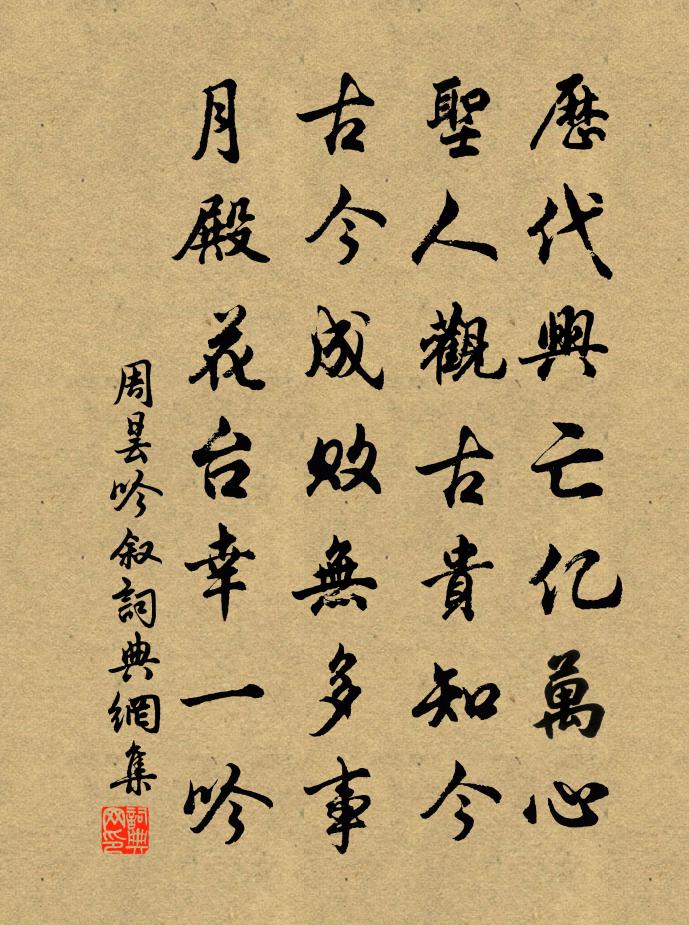 歷代興亡亿萬心
聖人觀古貴知今
古今成敗無多事
月殿花台幸一吟
周曇吟叙詞典網集
詞典网印